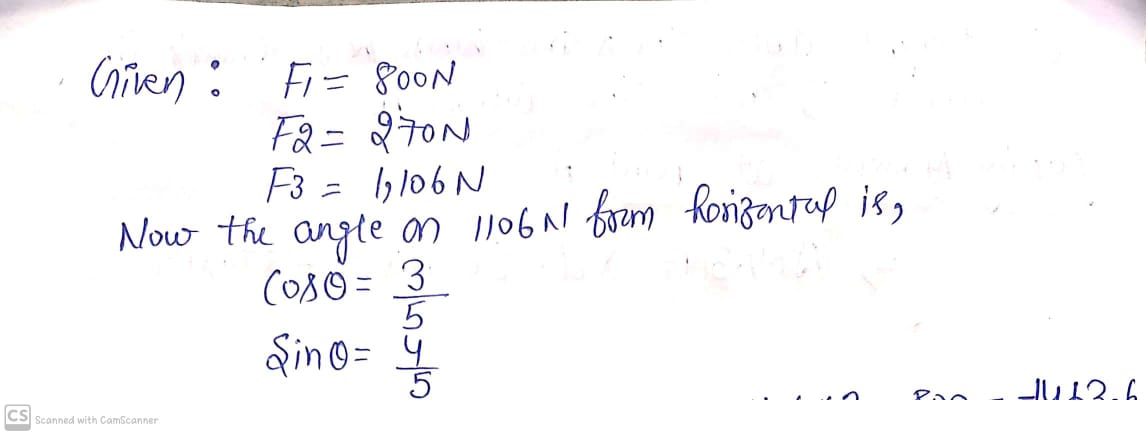 Given : F1 = 800N
F2 = 270N
F3 = 1,106 N
Now the angle on 1106 N from horizontal is,
Cosθ = 3/5
Sinθ = 4/5
CS Scanned with CamScanner